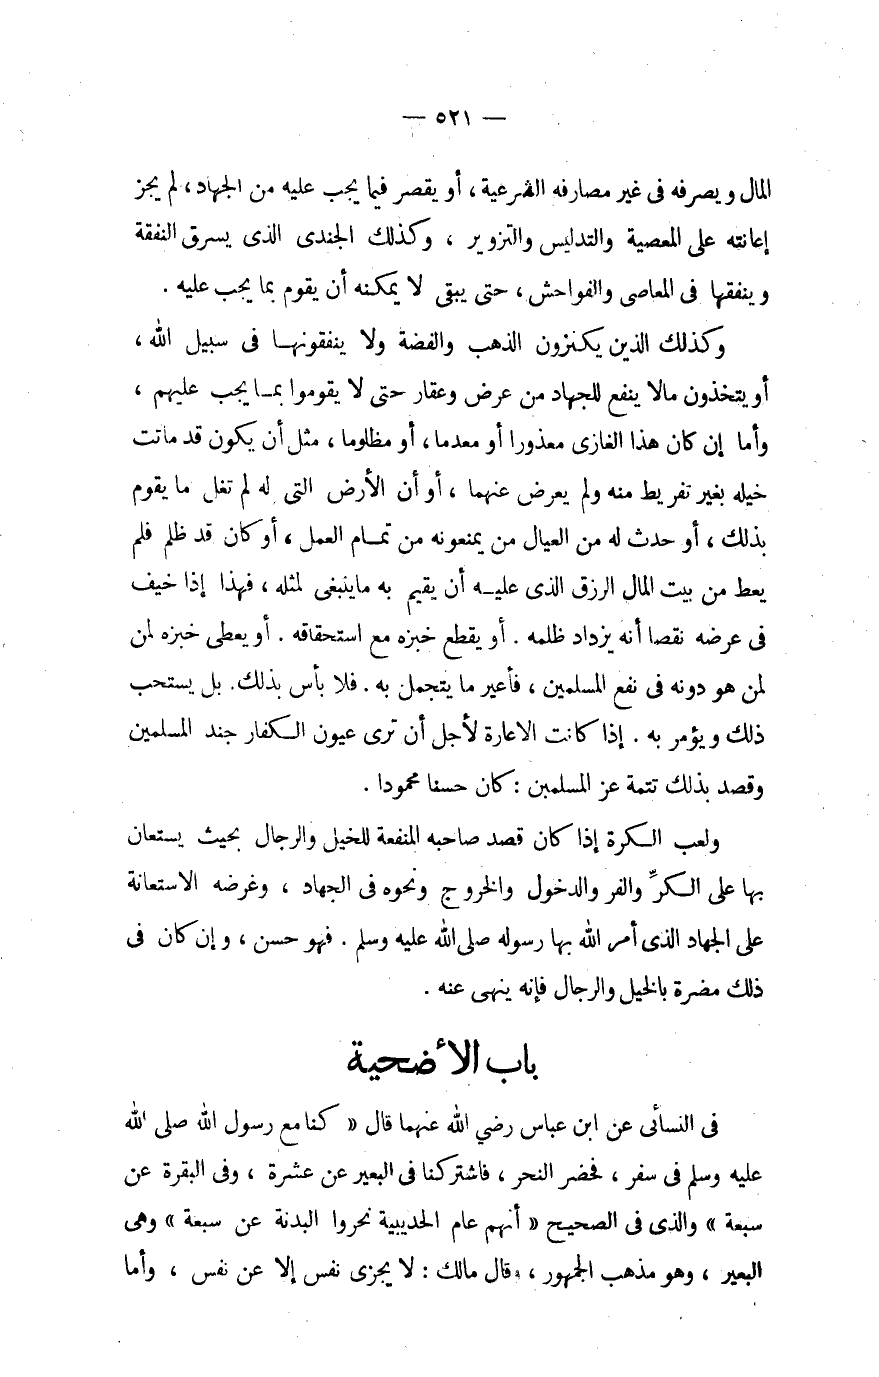 — ٥٢١ —
المال ويصرفه فى غير مصارفه الشرعية ، أو يقصر فيما يجب عليه من الجهاد ، لم يجز
إعانته على المعصية والتدليس والتزوير ، وكذلك الجندى الذى يسرق النفقة
وينفقها فى المعاصى والفواحش ، حتى يبقى لا يمكنه أن يقوم بما يجب عليه .
وكذلك الذين يكنزون الذهب والفضة ولا ينفقونها فى سبيل الله ،
أو يتخذون مالا ينفع للجهاد من عرض وعقار حتى لا يقوموا بما يجب عليهم ،
وأما إن كان هذا الغازى معذورا أو معدما ، أو مظلوما ، مثل أن يكون قد ماتت
خيله بغير تفريط منه ولم يعرض عنهما ، أو أن الأرض التى له لم تغل ما يقوم
بذلك ، أو حدث له من العيال من يمنعونه من تمام العمل ، أو كان قد ظلم فلم
يعط من بيت المال الرزق الذى عليه أن يقيم به ماينبغى لمثله ، فهذا إذا خيف
فى عرضه نقصا أنه يزداد ظلمه . أو يقطع خبزه مع استحقاقه . أو يعطى خبزه لمن
لمن هو دونه فى نفع المسلمين ، فأعير ما يتجمل به . فلا بأس بذلك . بل يستحب
ذلك ويؤمر به . إذا كانت الاعارة لأجل أن ترى عيون الكفار جند المسلمين
وقصد بذلك تتمة عز المسلمين : كان حسنا محمودا .
ولعب الكرة إذا كان قصد صاحبه المنفعة للخيل والرجال بحيث يستعان
بها على الكرِّ والفر والدخول والخروج ونحوه فى الجهاد ، وغرضه الاستعانة
على الجهاد الذى أمر الله بها رسوله صلى الله عليه وسلم . فهو حسن ، وإن كان فى
ذلك مضرة بالخيل والرجال فإنه ينهى عنه .
باب الأضحية
فى النسأئى عن ابن عباس رضي الله عنهما قال « كنا مع رسول الله صلى الله
عليه وسلم فى سفر ، فحضر النحر ، فاشتركنا فى البعير عن عشرة ، وفى البقرة عن
سبعة » والذى فى الصحيح « أنهم عام الحديبية نحروا البدنة عن سبعة » وهى
البعير ، وهو مذهب الجمهور ، وقال مالك : لا يجزى نفس إلا عن نفس ، وأما